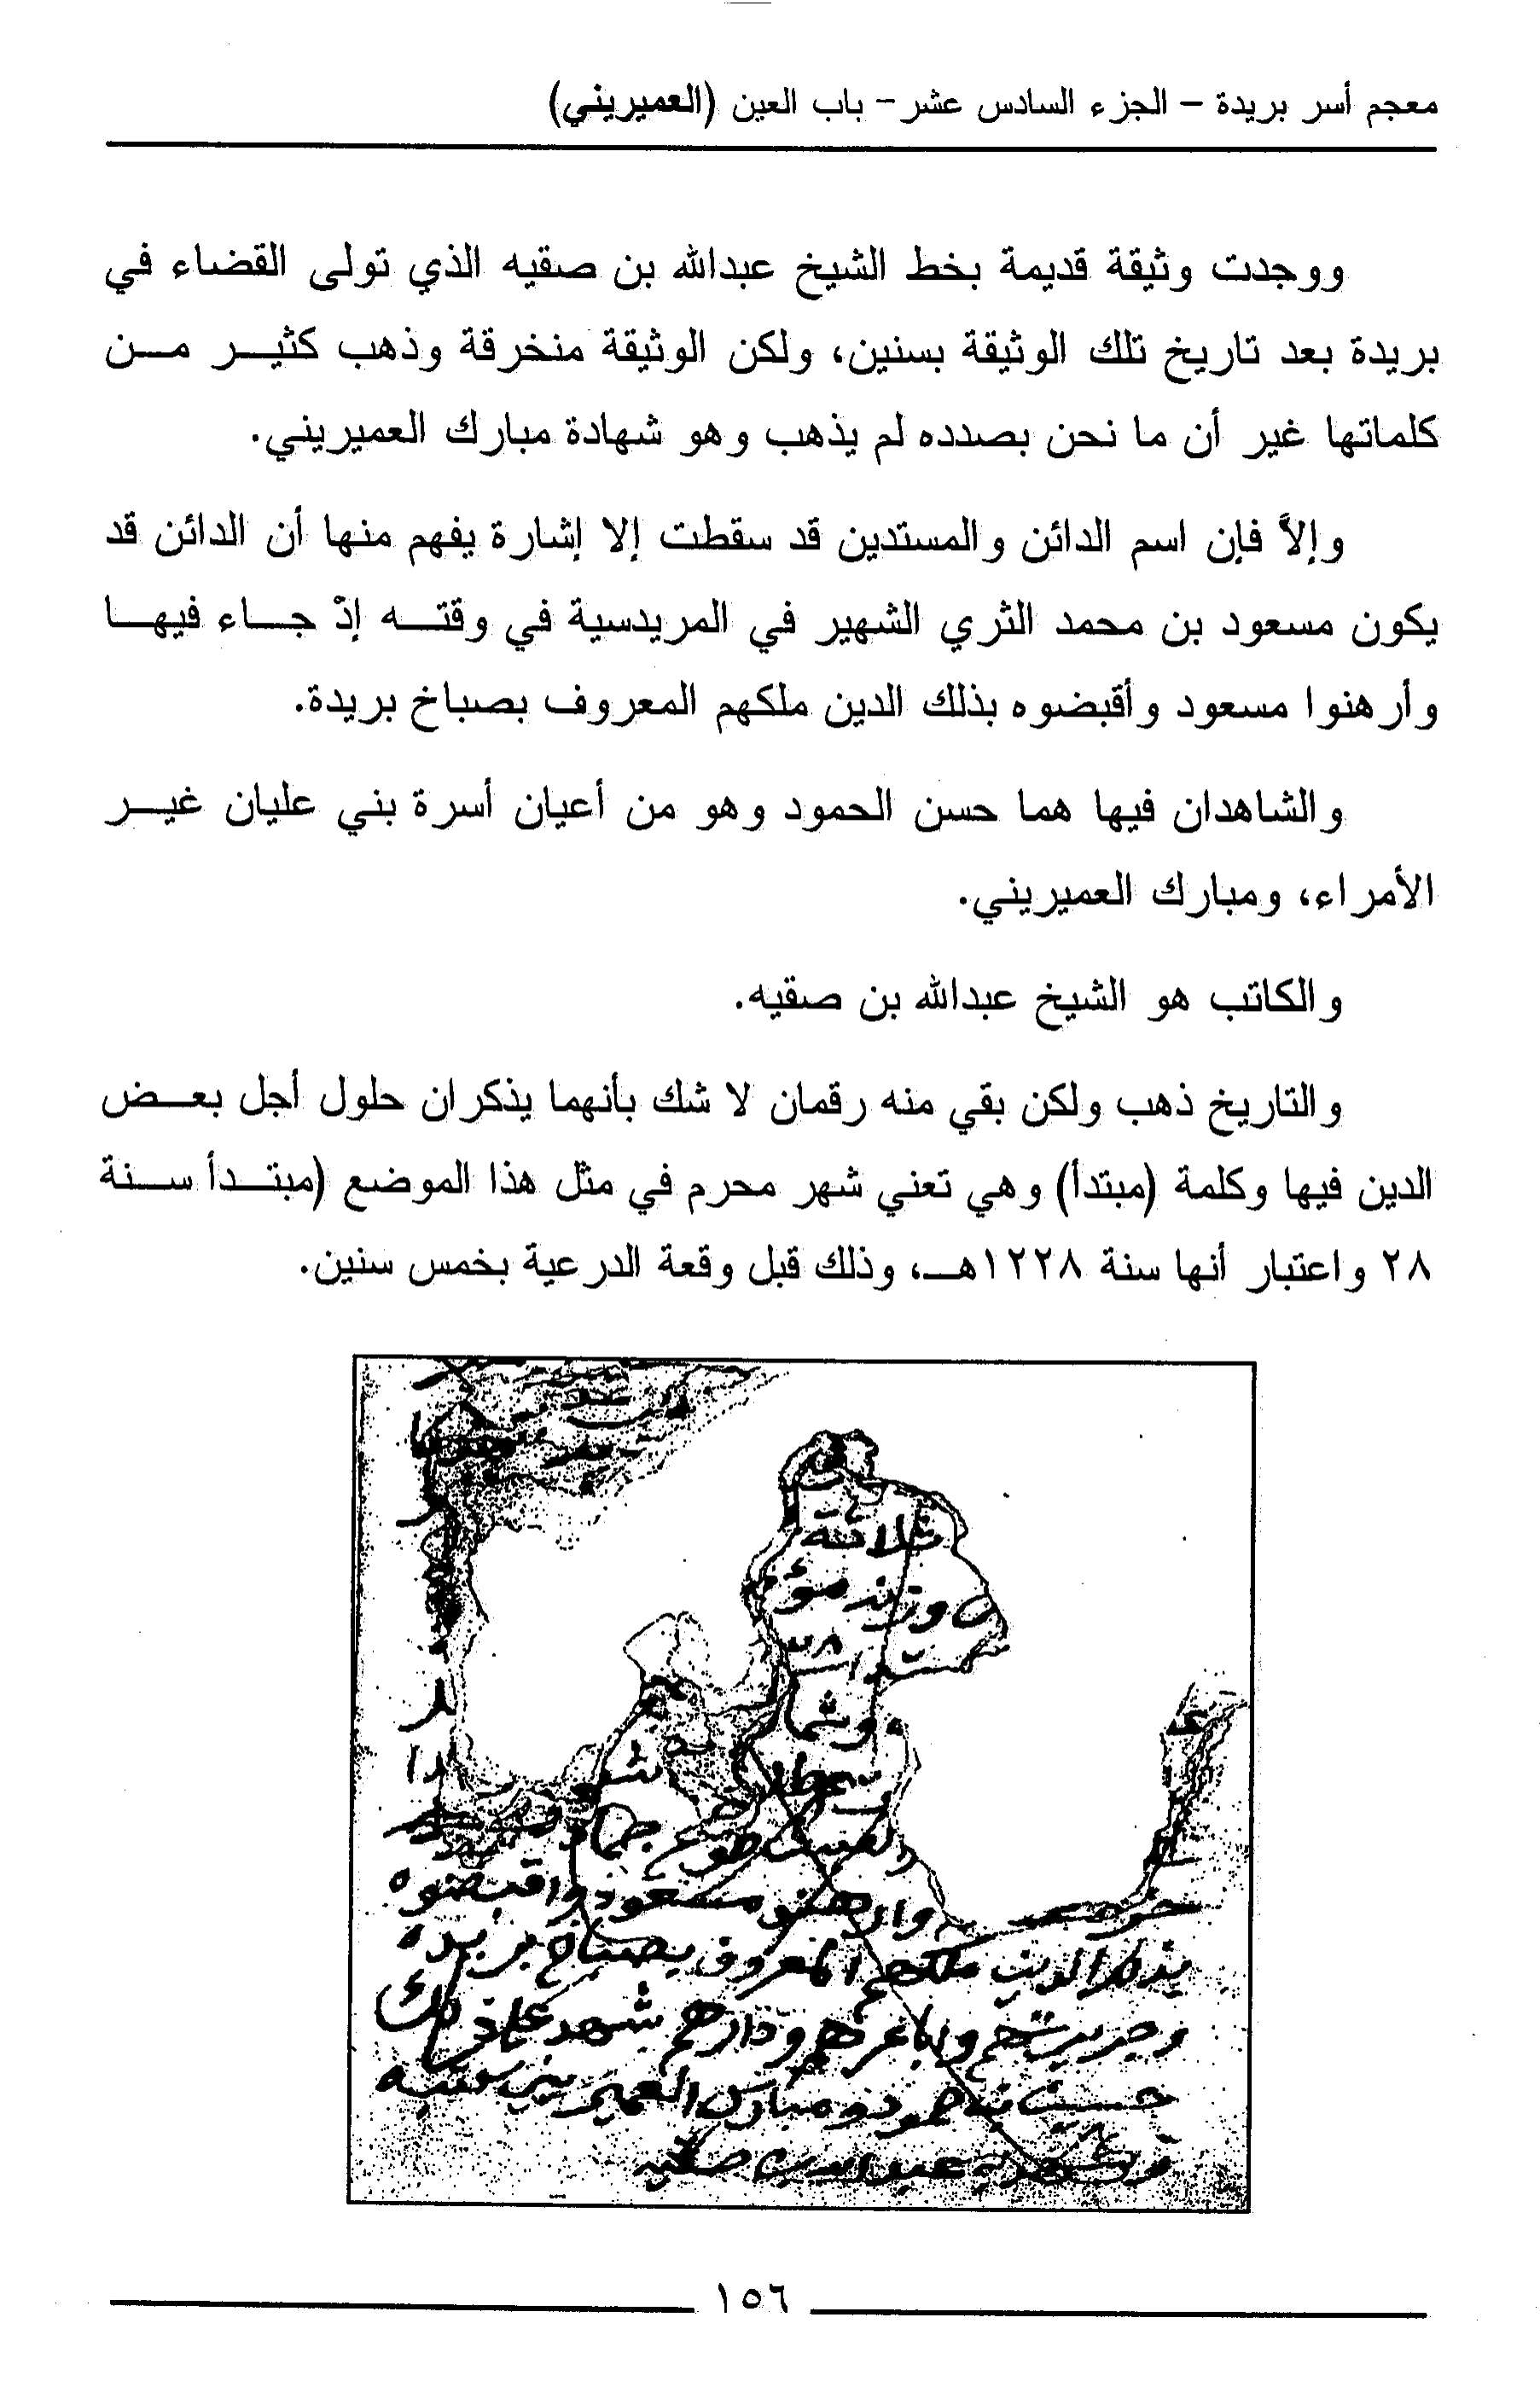 معجم أسر بريدة – الجزء السادس عشر – باب العين (العميريني)
ووجدت وثيقة قديمة بخط الشيخ عبدالله بن صقيه الذي تولى القضاء في
بريدة بعد تاريخ تلك الوثيقة بسنين، ولكن الوثيقة منخرقة وذهب كثيــر مــن
كلماتها غير أن ما نحن بصدده لم يذهب وهو شهادة مبارك العميريني.
وإلاَّ فإن اسم الدائن والمستدين قد سقطت إلا إشارة يفهم منها أن الدائن قد
يكون مسعود بن محمد الثري الشهير في المريدسية في وقتــه إذْ جــاء فيهــا
وأرهنوا مسعود وأقبضوه بذلك الدين ملكهم المعروف بصباخ بريدة.
والشاهدان فيها هما حسن الحمود وهو من أعيان أسرة بني عليان غيــر
الأمراء، ومبارك العميريني.
والكاتب هو الشيخ عبدالله بن صقيه.
والتاريخ ذهب ولكن بقي منه رقمان لا شك بأنهما يذكران حلول أجل بعــض
الدين فيها وكلمة (مبتدأ) وهي تعني شهر محرم في مثل هذا الموضع (مبتــدأ ســنة
٢٨ واعتبار أنها سنة ١٢٢٨هــ، وذلك قبل وقعة الدرعية بخمس سنين.
ثلاثة
٢٨
وثما
جماد
وارهنو مسعود واقبضوه
الدين ملكهم المعروف بصباخ بريده
ودارهم شهد على ذلك
حسن حمود ومبارك العميريني كتبه
وشهد به عبدالله بن صقيه
١٥٦